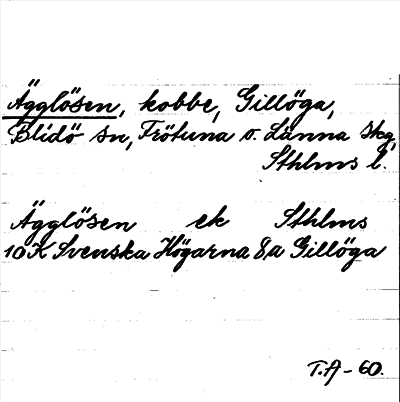 Ägglösen, kobbe, Gillöga,
Blidö sn, Frötuna o. Länna skg,
Sthlms l.
Ägglösen ek Sthlms
10K Svenska Högarna 8a Gillöga
T.A - 60.